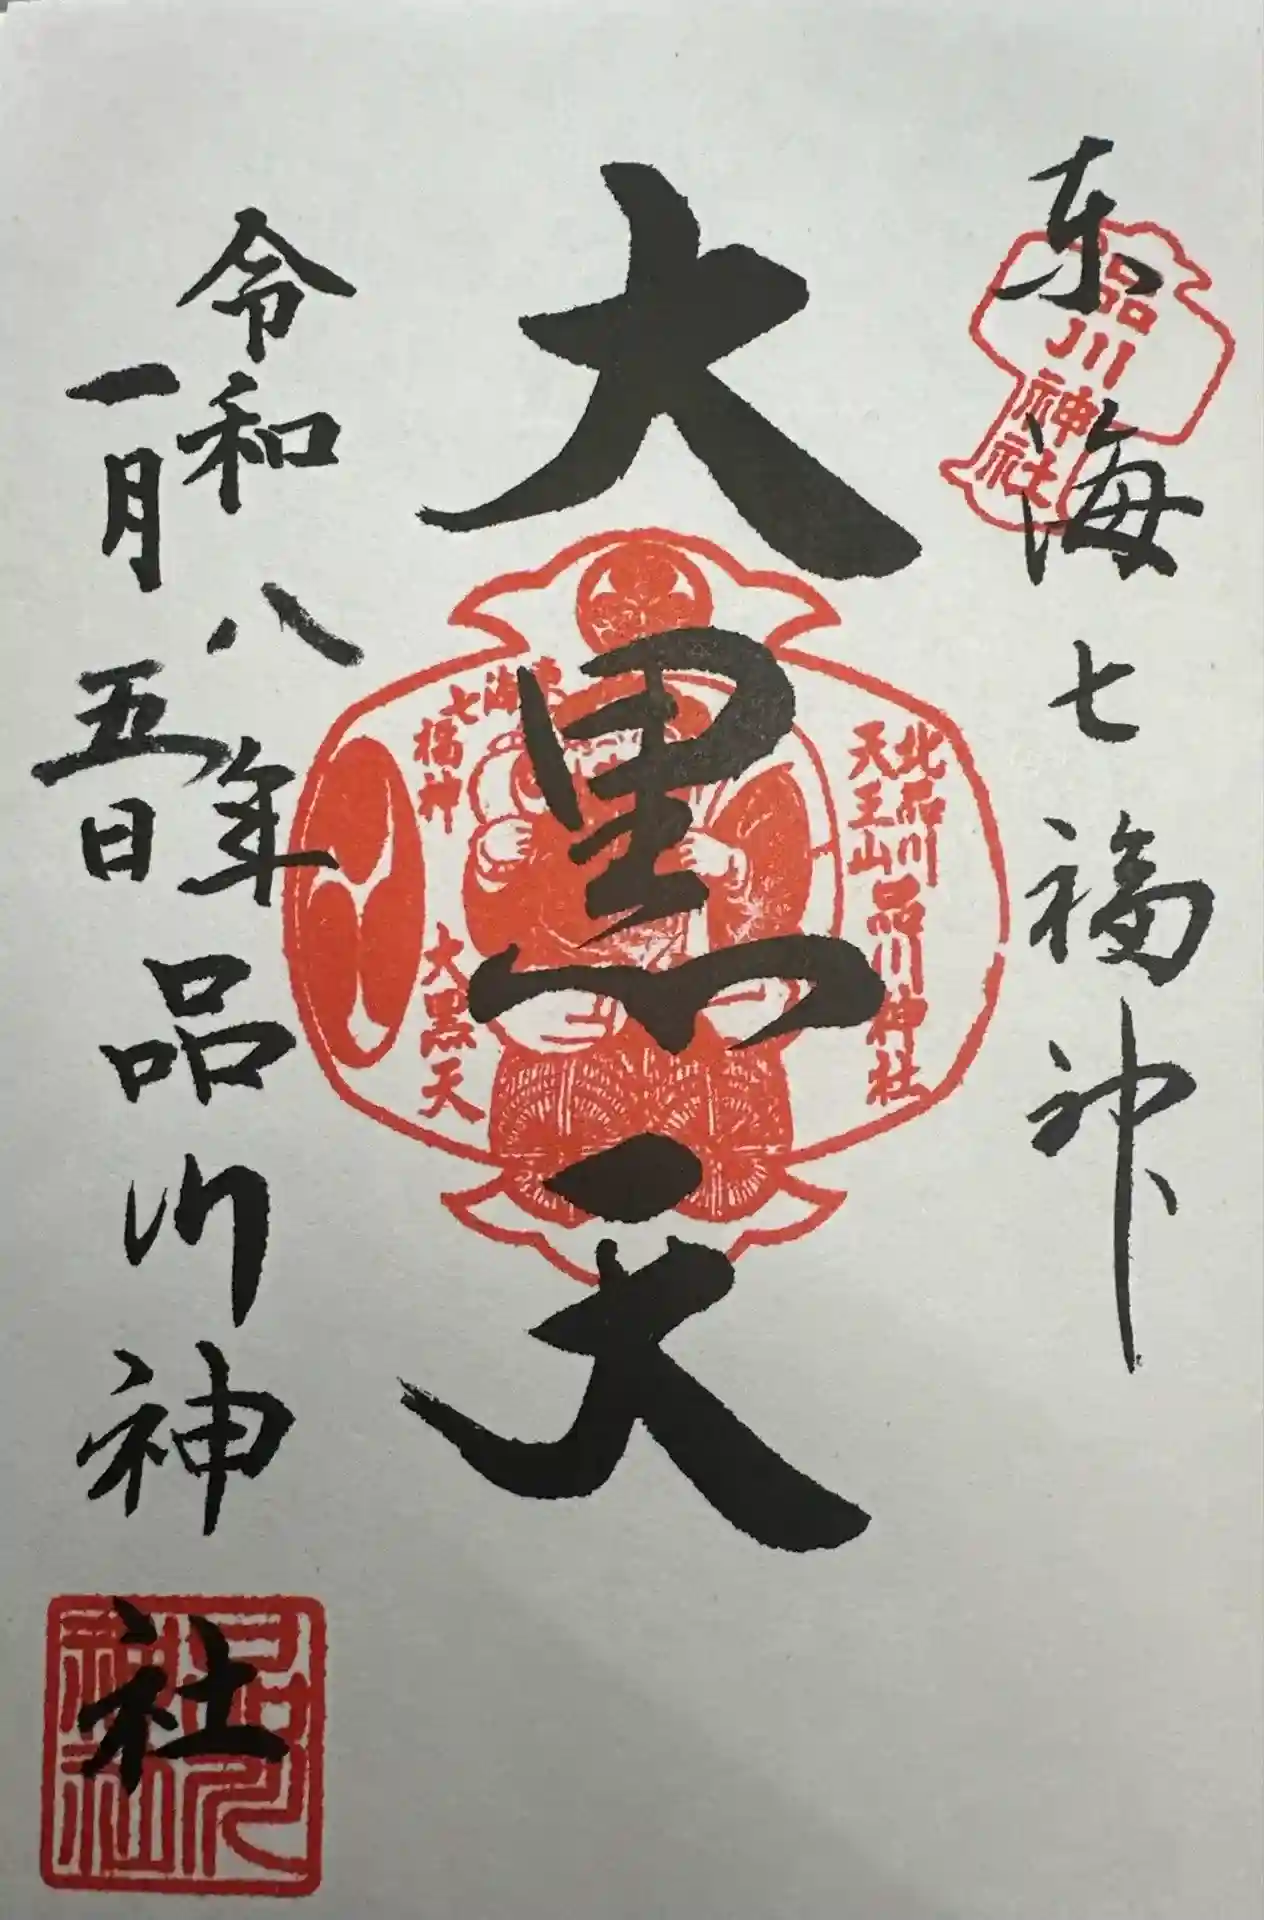 東海七福神
品川神社
大黒天
北品川
天王山
品川神社
東海
七
福神
大黒天
令和八年
一月五日
品川神社
品川
神社